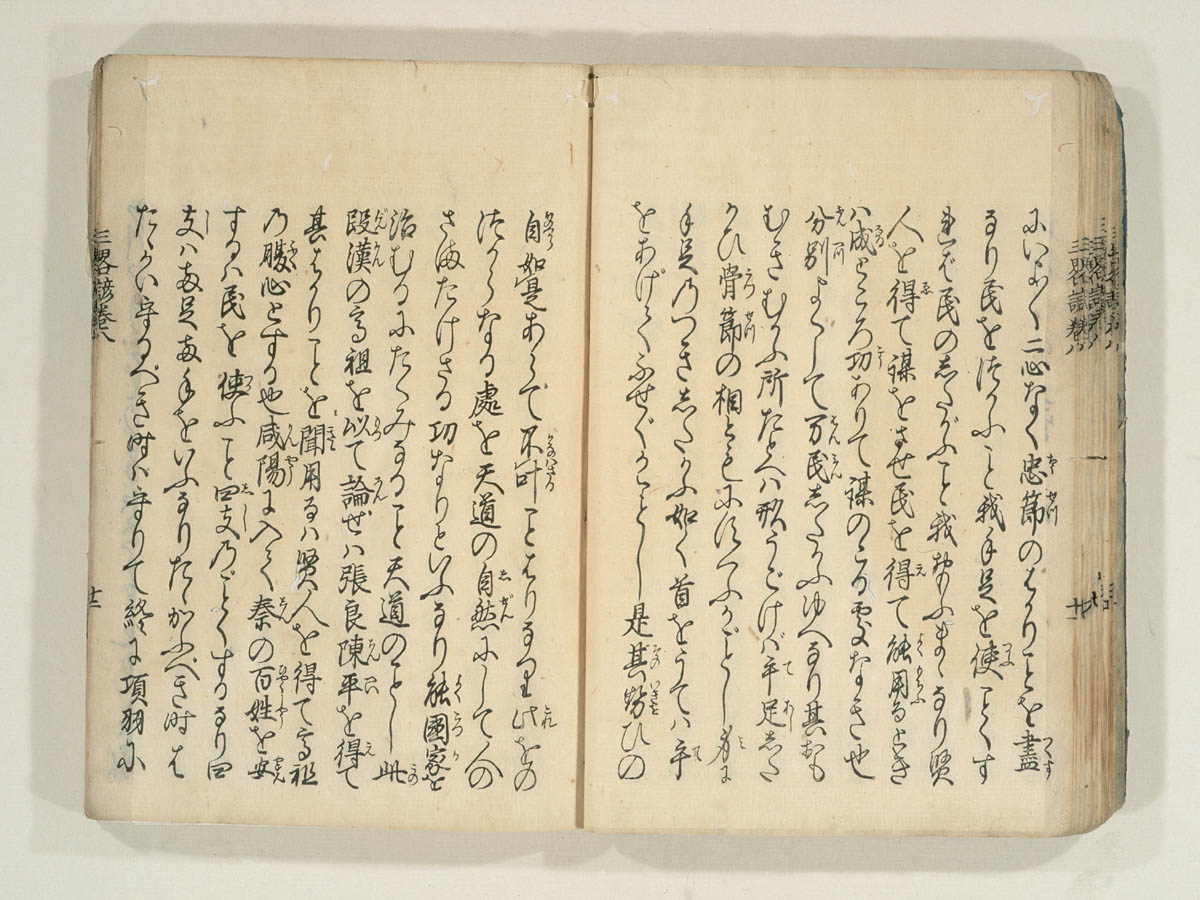 にいふく二心なく忠節のはかりことを盡
るり民をつかふこと我手足を使ことくす
れば民のしたがふこと我おもふまゝなり賢
人を得て謀をさせ民を得て能用るとき
ハ成ところ功ありて謀のこる処なき也
分別よくして万民したかふゆへなり其おも
むきむかふ所たとへハ形うごけバ手足した
かひ骨節の相ともにすくふがごとし身に
手足乃つきしたかふ如く首をうてハ手
をあげてふせぐかことし是其勢ひの
自如是あらで不叶ことはりなり此をの
つからなる處を天道の自然にして人の
さまたけさる功なりといふなり能國家を
治むるにたくみなること天道のことし此
段漢の高祖を以て論ぜハ張良陳平を得て
其はかりことを聞用るハ賢人を得て高祖
乃腹心とする也咸陽に入て秦の百姓を安
するハ民を使ふこと四支乃ごとくするなり四
支ハ両足両手をいふなりたゝかふべき時は
たゝかい守るべき時ハ守りて終に項羽に
三畧諺巻八
十二